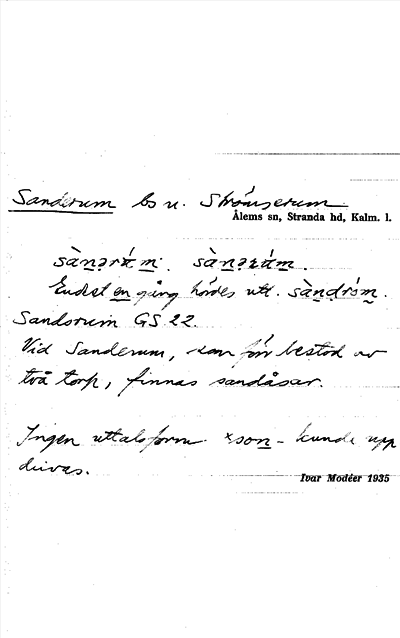 Sanderum bs u. Strömserum
Ålems sn, Stranda hd, Kalm. l.
sàn̲ərám̲. sàn̲ərám̲.
Endast en gång hördes utt. sàn̲drôm̲.
Sandsrum GS 22.
Vid Sanderum, som förr bestod av
två torp, finnas sandåsar.
Ingen uttalsform *son̲- kunde upp
drivas.
Ivar Modéer 1935